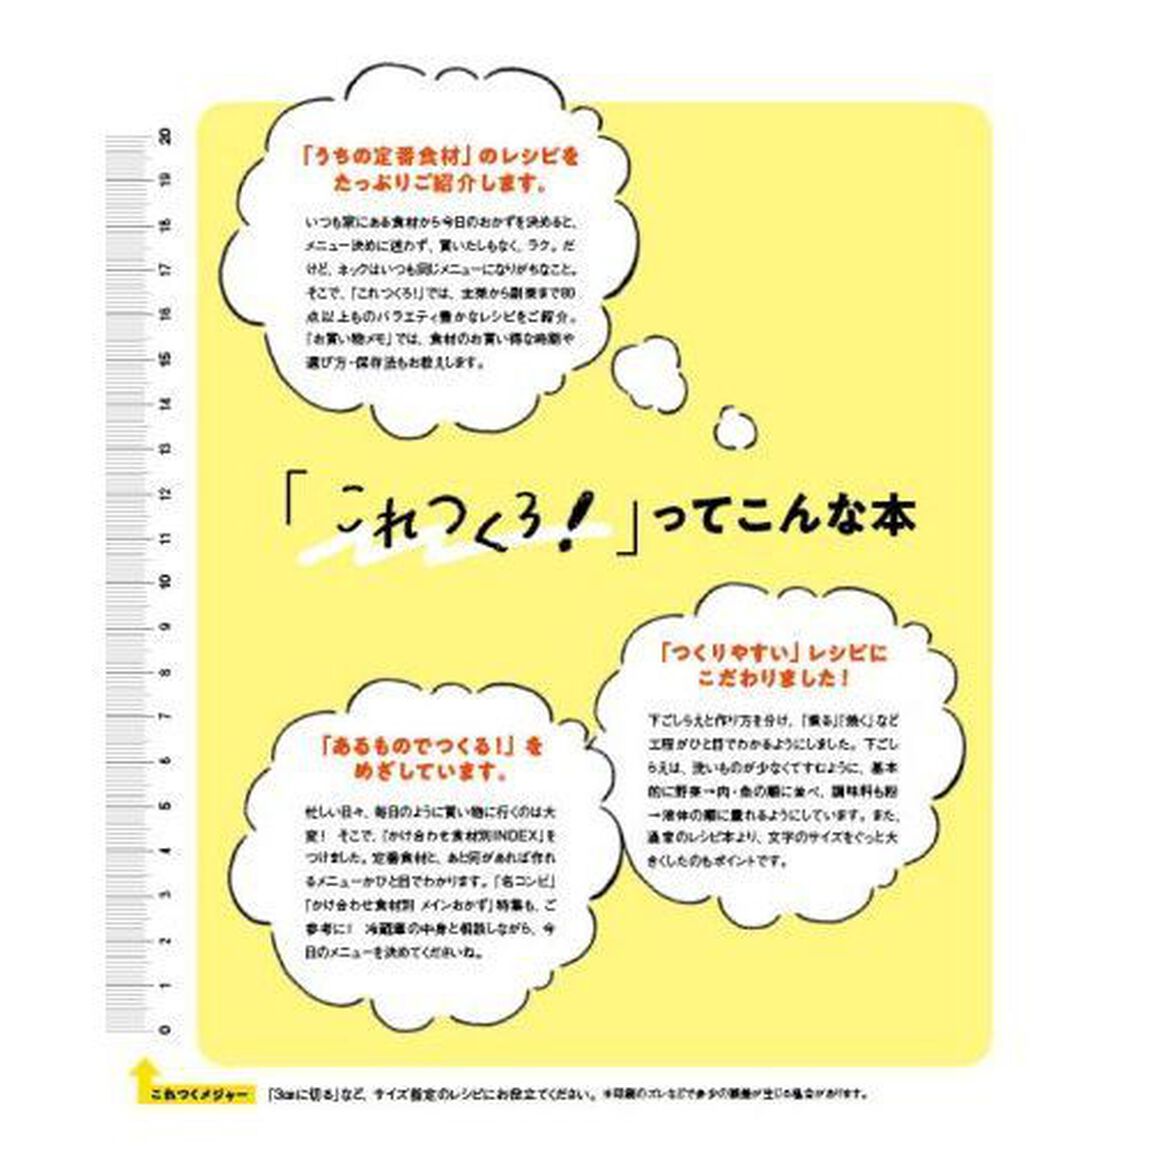 「うちの定番食材」のレシピを
たっぷりご紹介します。
いつも家にある食材から今日のおかずを決めると、
メニュー決めに迷わず、買いたしもなく、ラク。だ
けど、ネックはいつも同じメニューになりがちなこと。
そこで、「これつくろ!」では、主菜から副菜まで80
点以上ものバラエティ豊かなレシピをご紹介。
「お買い物メモ」では、食材のお買い得な時期や
選び方・保存法もお教えします。
「これつくろ!」ってこんな本
「つくりやすい」レシピに
こだわりました!
下ごしらえと作り方を分け、「煮る」「焼く」など
工程がひと目でわかるようにしました。下ごし
らえは、洗いものが少なくてすむように、基本
的に野菜→肉・魚の順に並べ、調味料も粉
→液体の順に量れるようにしています。また、
通常のレシピ本より、文字のサイズをぐっと大
きくしたのもポイントです。
「あるものでつくる!」を
めざしています。
忙しい日々、毎日のように買い物に行くのは大
変! そこで、「かけ合わせ食材別INDEX」を
つけました。定番食材と、あと何があれば作れ
るメニューかひと目でわかります。「名コンビ」
「かけ合わせ食材別 メインおかず」特集も、ご
参考に! 冷蔵庫の中身と相談しながら、今
日のメニューを決めてくださいね。
20
19
18
17
16
15
14
13
12
11
10
9
8
7
6
5
4
3
2
1
0
これつくメジャー 「3cmに切る」など、サイズ指定のレシピにお役立てください。※印刷のズレなどで多少の誤差が生じる場合があります。